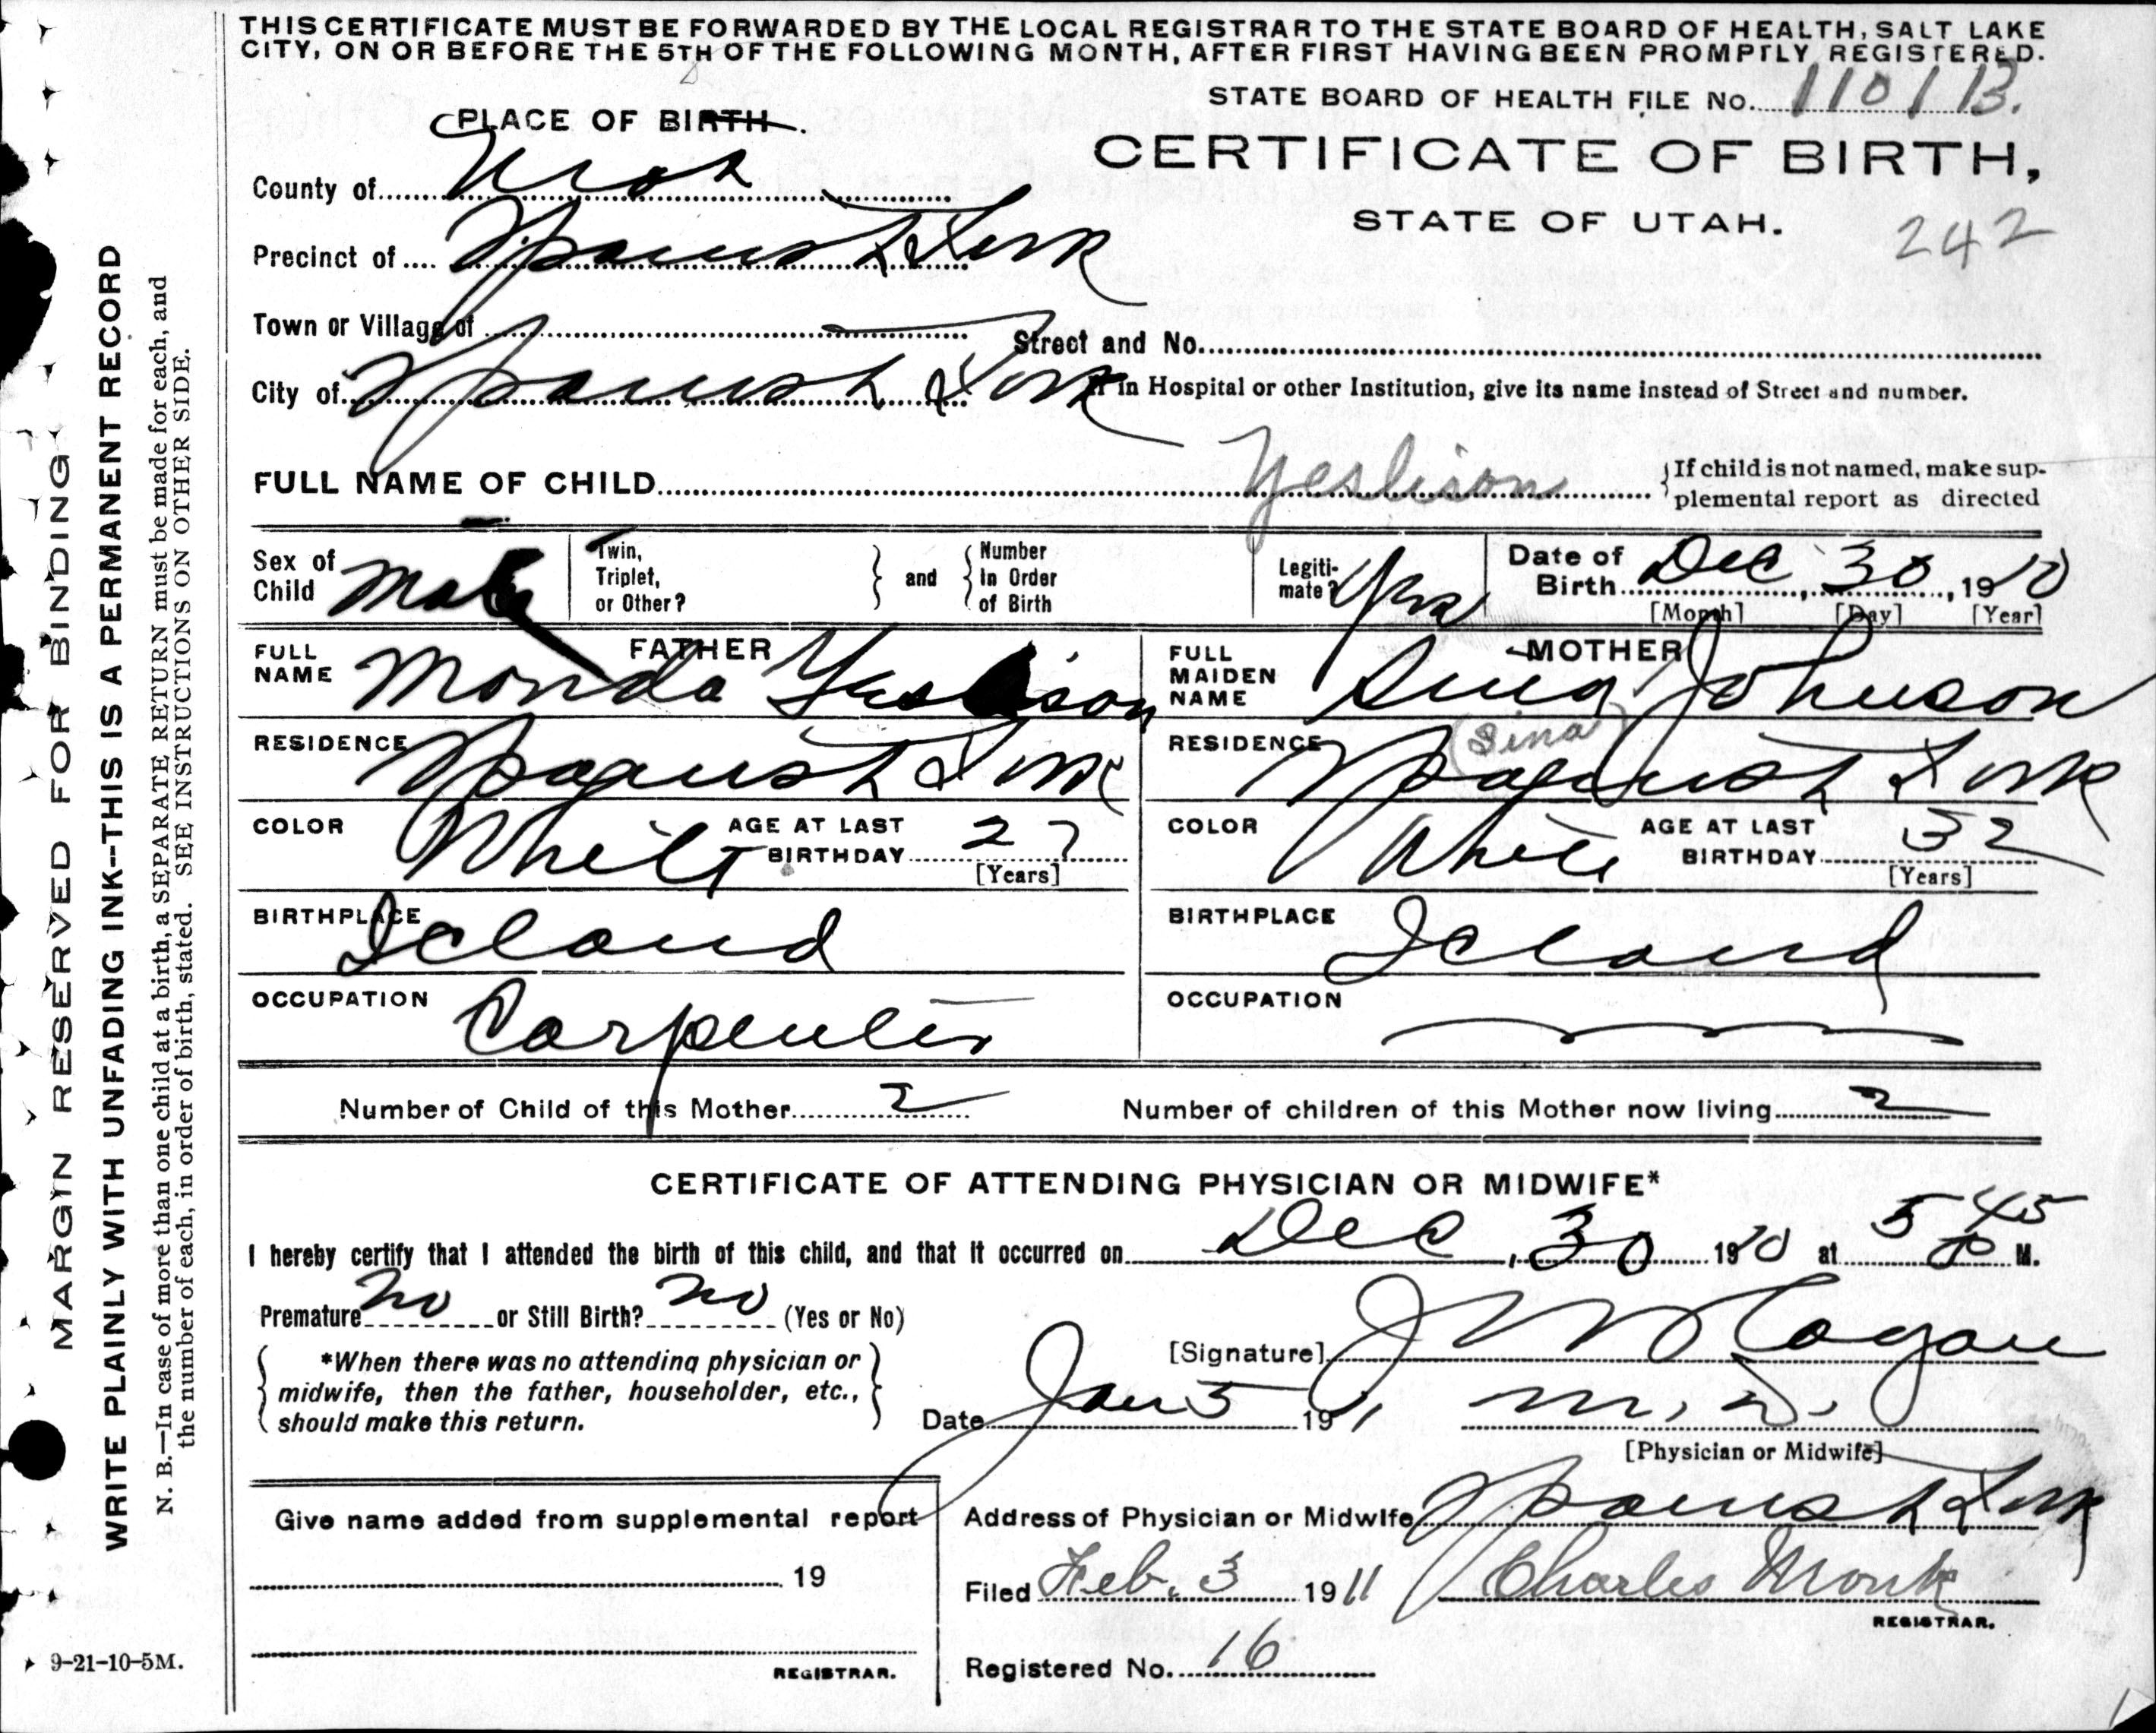 THIS CERTIFICATE MUST BE FORWARDED BY THE LOCAL REGISTRAR TO THE STATE BOARD OF HEALTH, SALT LAKE
CITY, ON OR BEFORE THE 5TH OF THE FOLLOWING MONTH, AFTER FIRST HAVING BEEN PROMPTLY REGISTERED.
STATE BOARD OF HEALTH FILE No. 110113.
PLACE OF BIRTH.
CERTIFICATE OF BIRTH,
STATE OF UTAH.
242
County of Utah
Precinct of Spanish Fork
Town or Village of
Street and No.
City of Spanish Fork
If in Hospital or other Institution, give its name instead of Street and number.
FULL NAME OF CHILD Yeslison
If child is not named, make sup-
plemental report as directed
Sex of Child Male
Twin, Triplet, or Other?
and
Number In Order of Birth
Legiti-mate? Yes
Date of Birth Dec 30, 1910
[Month] [Day] [Year]
FATHER
FULL NAME Monda
MOTHER
FULL MAIDEN NAME Sina Johnson
(Sina)
RESIDENCE Spanish Fork
RESIDENCE Spanish Fork
COLOR White
AGE AT LAST BIRTHDAY 27
[Years]
COLOR White
AGE AT LAST BIRTHDAY 32
[Years]
BIRTHPLACE Iceland
BIRTHPLACE Iceland
OCCUPATION Carpenter
OCCUPATION
Number of Child of this Mother 2
Number of children of this Mother now living 2
CERTIFICATE OF ATTENDING PHYSICIAN OR MIDWIFE*
I hereby certify that I attended the birth of this child, and that it occurred on Dec, 30 1910 at 5 45 P M.
Premature No or Still Birth? No (Yes or No)
*When there was no attending physician or
midwife, then the father, householder, etc.,
should make this return.
[Signature] J W Hagan
Date Jan 5 1911
M. D.
[Physician or Midwife]
Give name added from supplemental report
19
REGISTRAR.
Address of Physician or Midwife Spanish Fork
Filed Feb. 3 1911
Charles Monk
REGISTRAR.
Registered No. 16
MARGIN RESERVED FOR BINDING
WRITE PLAINLY WITH UNFADING INK--THIS IS A PERMANENT RECORD
N. B.—In case of more than one child at a birth, a SEPARATE RETURN must be made for each, and
the number of each, in order of birth, stated. SEE INSTRUCTIONS ON OTHER SIDE.
9-21-10-5M.